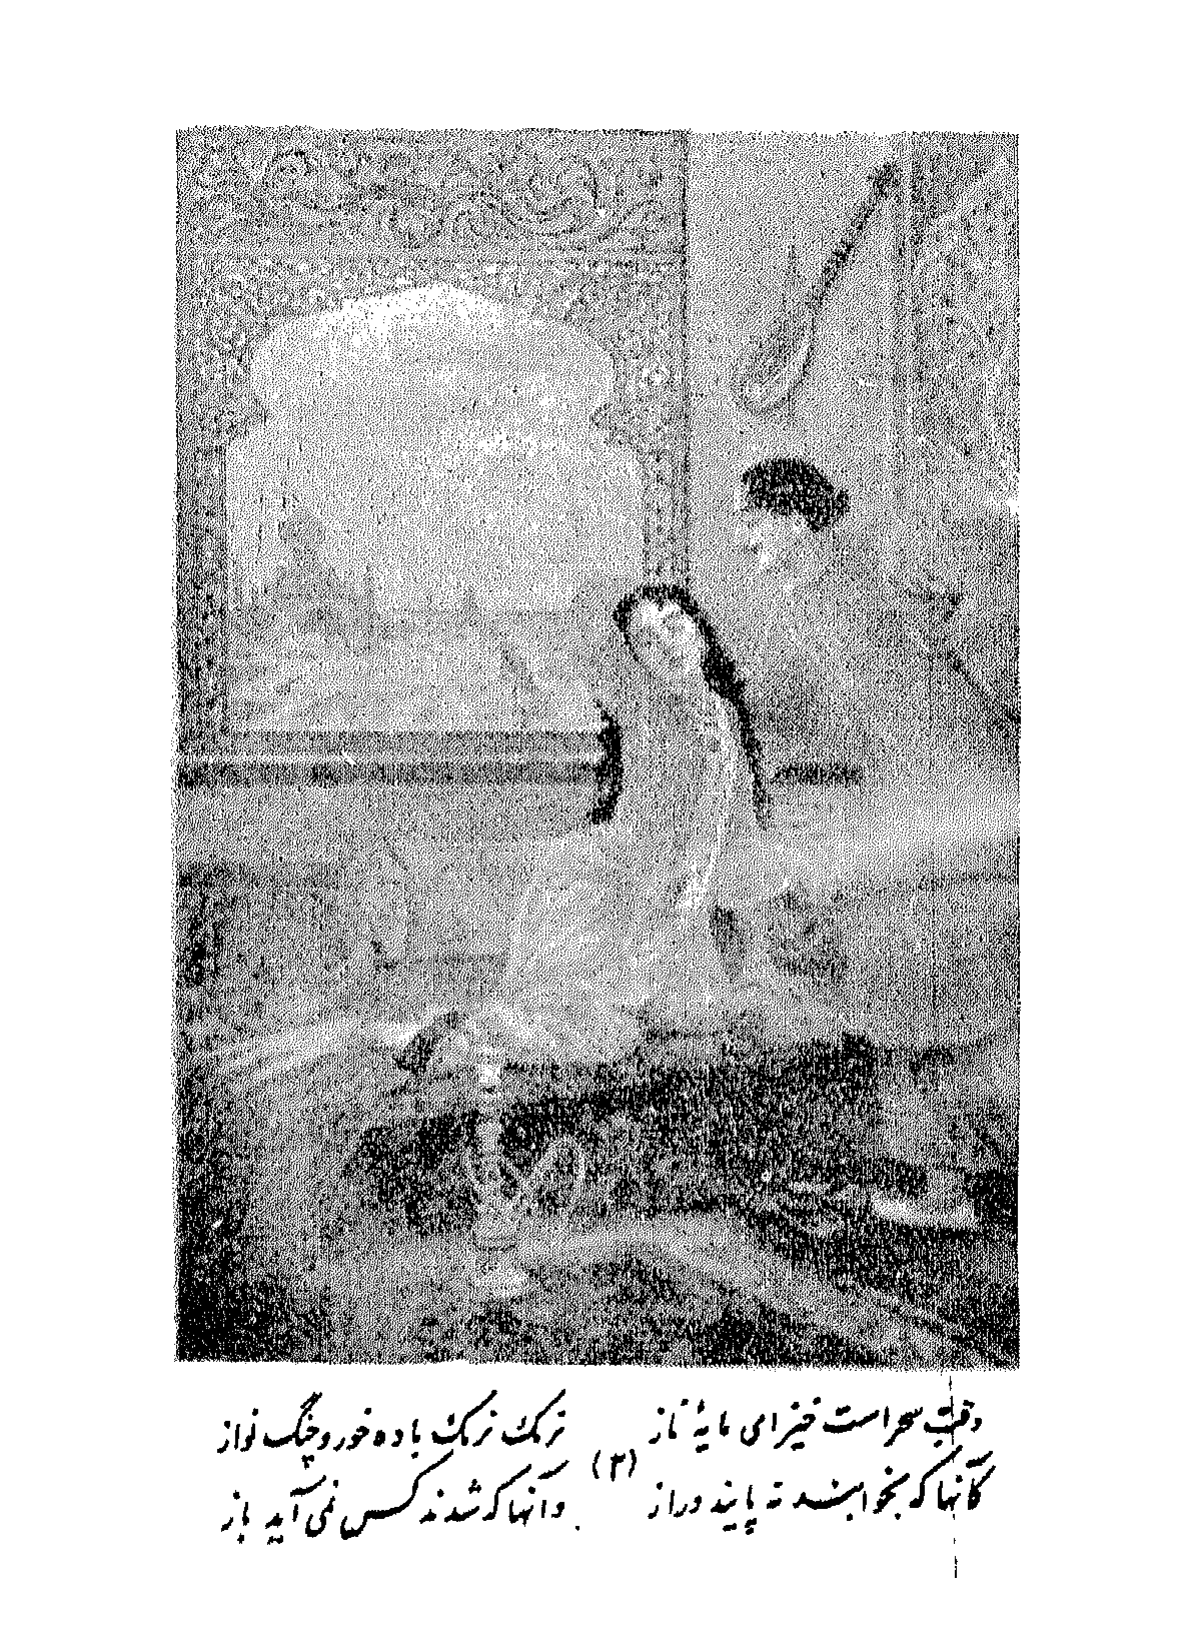 وقت سحر است خیز ای مایهٔ ناز نرمک نرمک باده خور و چنگ نواز
(۳)
کآنها که بخوابند نه پایند دراز وآنها که شدند کس نمی آید باز